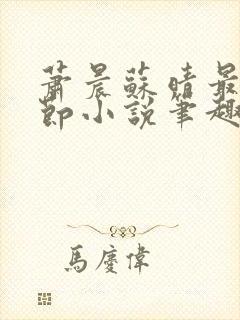 蕭晨蘇晴最
節小說筆趣
馬慶偉